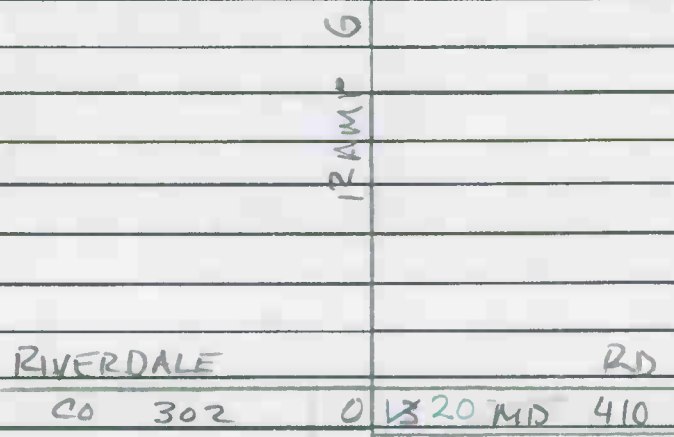 RAMP G
RIVERDALE RD
CO 302 0 20 MD 410